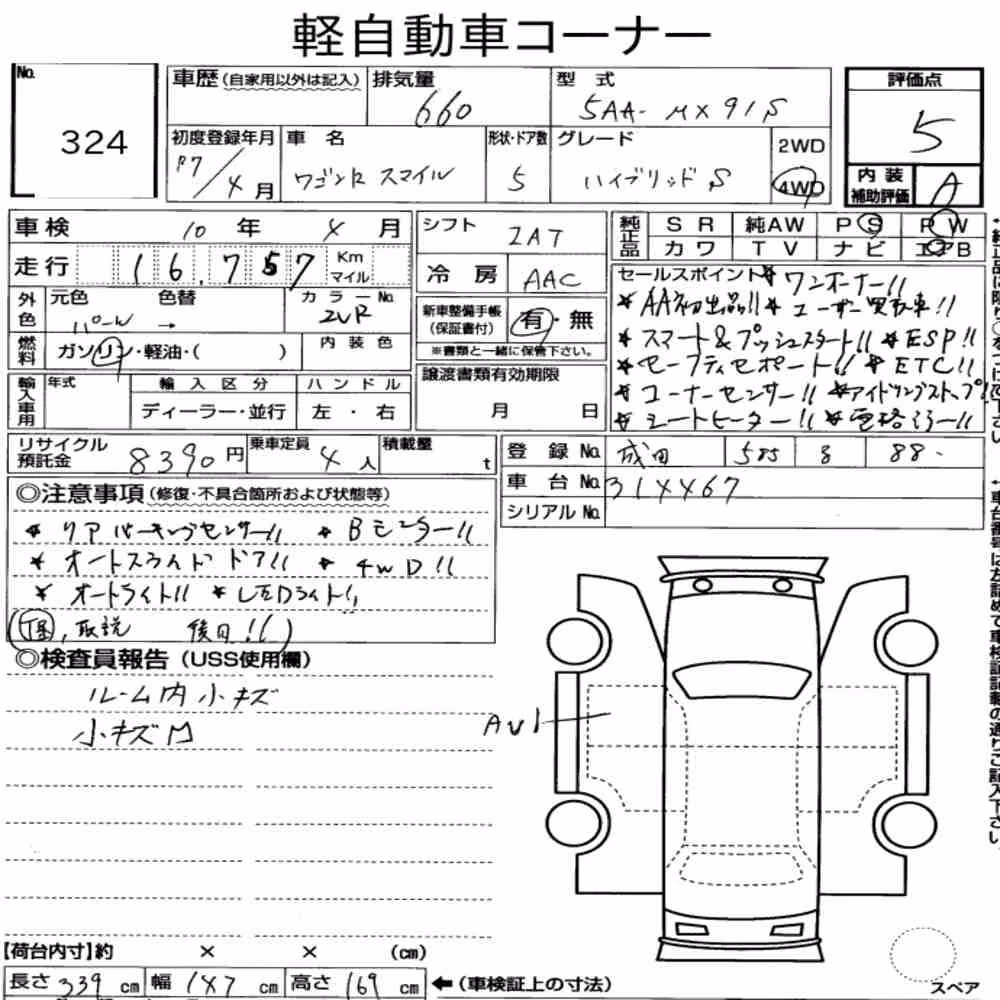 軽自動車コーナー
No. 324
車歴(自家用以外は記入) 排気量 660 型式 5AA-MX91S 評価点 5
初度登録年月 R7/4月 車名 ワゴンR スマイル 形状・ドア数 5 グレード ハイブリッド S 2WD 4WD 内装補助評価 A
車検 10年 4月 シフト IAT 純正品 SR 純AW PS PW
走行 16,757 Km マイル 冷房 AAC カワ TV ナビ エアB
外色 元色 パール 色替 → カラーNo. ZVR 新車整備手帳(保証書付) 有・無
※書類と一緒に保管下さい。
燃料 ガソリン・軽油・( ) 内装色
輸入車用 年式 輸入区分 ディーラー・並行 ハンドル 左・右 譲渡書類有効期限 月 日
セールスポイント * ワンオーナー!!
* AA初出品!! * ユーザー買取車!!
* スマート&プッシュスタート!! * ESP!!
* セーフティサポート!! * ETC!!
* コーナーセンサー!! * アイドリングストップ!!
* シートヒーター!! * 電格ミラー!!
リサイクル預託金 8390円 乗車定員 4人 積載量 t
登録No. 成田 585 る 88-
車台No. 314467
シリアルNo.
◎注意事項(修復・不具合箇所および状態等)
* リアパーキングセンサー!! * Bモニター!!
* オートスライドドア!! * 4WD!!
* オートライト!! * LEDライト!!
取説 後日!!
◎検査員報告(USS使用欄)
ルーム内小キズ
小キズ
AU1
【荷台内寸】約 × × (cm)
長さ 339 cm 幅 147 cm 高さ 169 cm ←(車検証上の寸法)
スペア
↑車台番号は左詰めで車検証記載の通りご記入下さい。